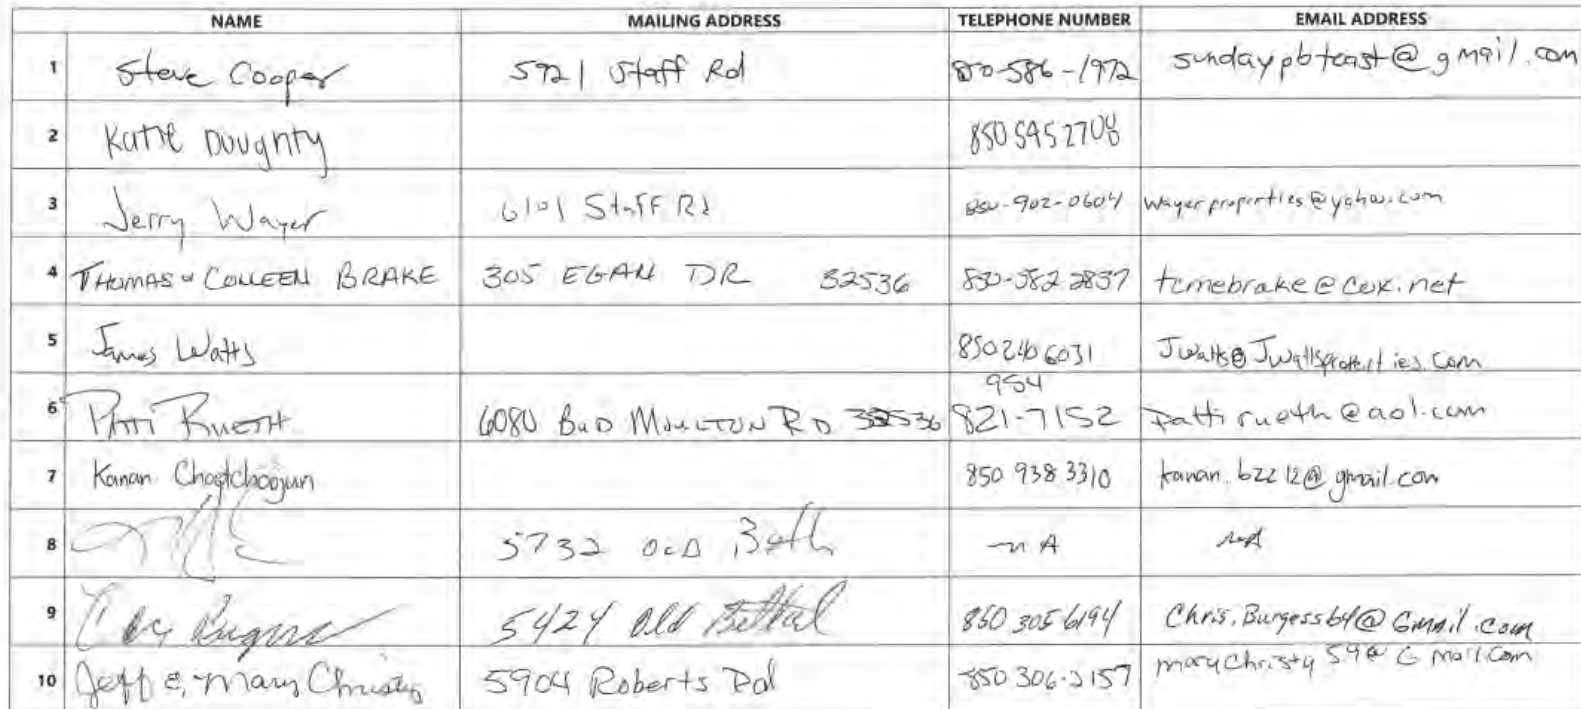 NAME MAILING ADDRESS TELEPHONE NUMBER EMAIL ADDRESS
1 Steve Cooper 5921 Staff Rd 850-586-1972 sundaypbteast@gmail.com
2 Katie Doughty 850 5952708
3 Jerry Wayer 6101 Staff Rd 850-902-0604 wayerproperties@yahoo.com
4 THOMAS & COLLEEN BRAKE 305 EGAN DR 32536 850-582 2837 tcmebrake@cox.net
5 James Watts 850 240 6031
954
6 PATTI RUETH 6080 BUD MOULTON RD 32536 821-7152 pattirueth@aol.com
7 Kanan 850 938 3310 kanan.bzz12@gmail.com
8 5732 OLD Beth NA NA
9 Burgess 5424 Old Bethel 850 305 6194 Chris.Burgess64@Gmail.com
10 Jeff & Mary Christy 5904 Roberts Rd 850 306-3157 marychristy59@Gmail.com